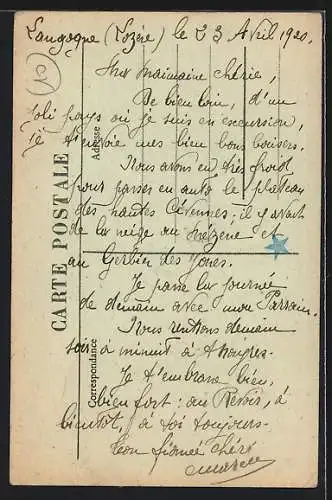 Langogne (Lozère) le 23 Avril 1920.
maimaine chérie,
De bien loin, d'un
joli pays où je suis en excursion,
je t'envoie mes bien bons baisers.
Nous avons eu très froid
pour passer en auto le plateau
des hautes Cévennes; il y avait
de la neige au Mézenc et
au Gerbier des Joncs.
Je passe la journée
de demain avec mon Parrain.
Nous rentrons demain
soir à minuit à
Je t'embrasse bien,
bien fort: au Revoir, à
bientôt, à toi toujours.
Ton fiancé chéri
CARTE POSTALE
Adresse
Correspondance